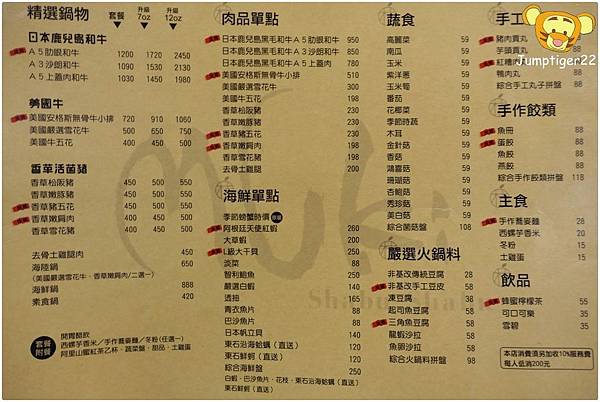 精選鍋物 套餐 升級7oz 升級12oz
日本鹿兒島和牛
A5肋眼和牛 1200 1720 2450
A3沙朗和牛 1090 1530 2130
A5上蓋肉和牛 1030 1450 1980
美國牛
美國安格斯無骨牛小排 720 910 1060
美國嚴選雪花牛 500 650 750
美國牛五花 400 500 550
香草活菌豬
香草松阪豬 450 500 550
香草嫩豚豬 400 450 500
香草豬五花 400 450 500
香草嫩肩肉 400 450 500
香草雪花豬 400 450 500
去骨土雞腿肉 450
海陸鍋 650
(美國嚴選雪花牛、香草嫩肩肉/二選一)
海鮮鍋 888
素食鍋 420
套餐附餐
開胃醋飲
西螺芋香米/手作蕎麥麵/冬粉(任選一)
阿里山蜜紅茶乙杯、蔬菜盤、甜品、土雞蛋
肉品單點
日本鹿兒島黑毛和牛A5肋眼和牛 950
日本鹿兒島黑毛和牛A3沙朗和牛 840
日本鹿兒島黑毛和牛A5上蓋肉 780
美國安格斯無骨牛小排 510
美國嚴選雪花牛 340
美國牛五花 240
香草松阪豬 290
香草嫩豚豬 240
香草豬五花 240
香草嫩肩肉 240
香草雪花豬 240
去骨土雞腿 240
海鮮單點
季節螃蟹時價
阿根廷天使紅蝦 260
大草蝦 200
L級大干貝 250
淡菜 88
智利鮑魚 250
嚴選白蝦 140
透抽 165
青衣魚片 88
巴沙魚片 88
日本帆立貝 140
東石沿海蛤蠣(直送) 140
東石鮮蚵(直送) 140
綜合海鮮盤 250
白蝦、巴沙魚片、花枝、東石沿海蛤蠣(直送)
東石鮮蚵(直送)
蔬食
高麗菜 59
南瓜 59
玉米 59
紫洋蔥 59
玉米筍 59
番茄 59
花椰菜 59
季節時蔬 59
木耳 59
金針菇 59
香菇 59
鴻喜菇 59
珊瑚菇 59
杏鮑菇 59
秀珍菇 59
美白菇 59
綜合菌菇盤 108
嚴選火鍋料
非基改傳統豆腐 28
非基改手工豆皮 58
凍豆腐 38
起司魚豆腐 58
三角魚豆腐 58
龍蝦沙拉 58
魚蝦沙拉 58
綜合火鍋料拼盤 98
手工
豬肉貢丸
芋頭貢丸
紅糟肉
鴨肉丸
綜合手工丸子拼盤 88
手作餃類
魚冊 88
蛋餃 88
魚餃 88
燕餃 88
綜合手作餃類拼盤 118
主食
手作蕎麥麵 28
西螺芋香米 20
冬粉 15
土雞蛋 15
飲品
蜂蜜檸檬茶 55
可口可樂 35
雪碧 35
本店消費須另加收10%服務費
每人低消200元
Muki
Shabu Shabu
Jumptiger22